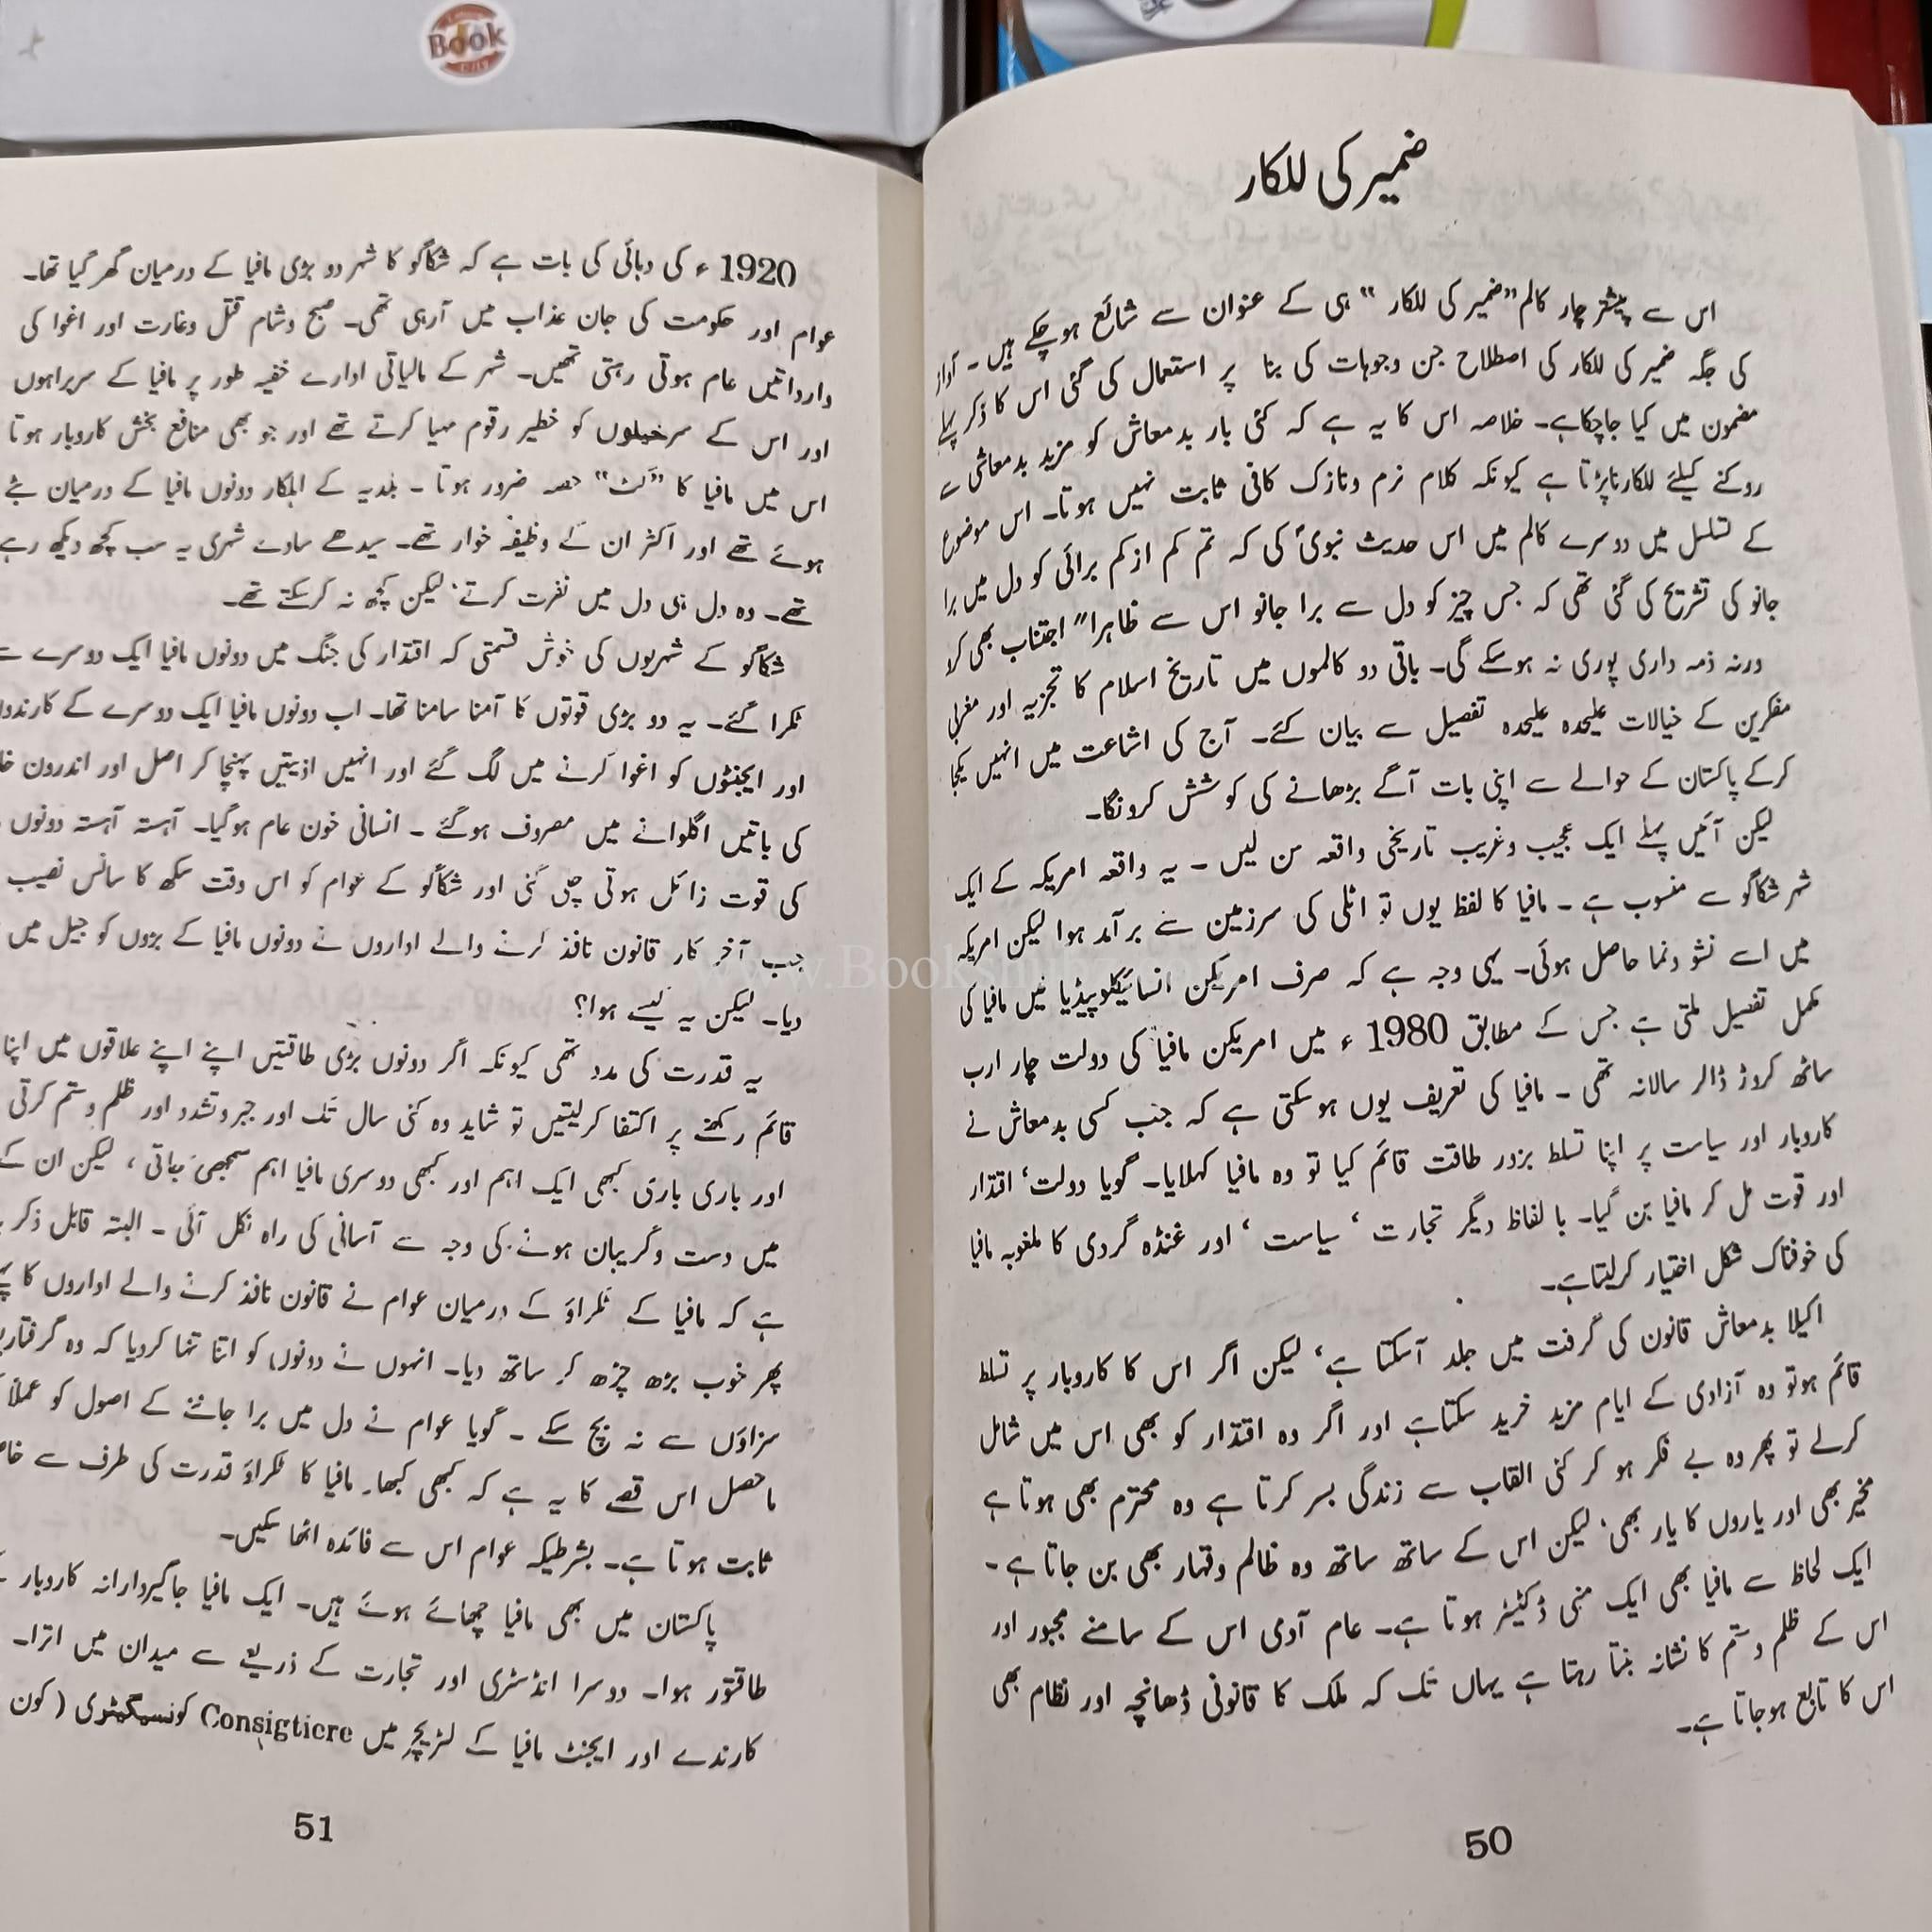 Book
ضمیر کی للکار
اس سے پیشتر چار کالم "ضمیر کی للکار" ہی کے عنوان سے شائع ہوچکے ہیں۔ آواز
کی جگہ ضمیر کی للکار کی اصطلاح جن وجوہات کی بنا پر استعمال کی گئی اس کا ذکر پہلے
مضمون میں کیا جاچکاہے۔ خلاصہ اس کا یہ ہے کہ کئی بار بدمعاش کو مزید بدمعاشی سے
روکنے کیلئے للکارناپڑتا ہے کیونکہ کلام نرم ونازک کافی ثابت نہیں ہوتا۔ اس موضوع
کے تسلسل میں دوسرے کالم میں اس حدیث نبویؐ کی کہ تم کم ازکم برائی کو دل میں برا
جانو کی تشریح کی گئی تھی کہ جس چیز کو دل سے برا جانو اس سے ظاہرا" اجتناب بھی کرو
ورنہ ذمہ داری پوری نہ ہوسکے گی۔ باقی دو کالموں میں تاریخ اسلام کا تجزیہ اور مغربی
مفکرین کے خیالات علیحدہ علیحدہ تفصیل سے بیان کئے۔ آج کی اشاعت میں انہیں یکجا
کرکے پاکستان کے حوالے سے اپنی بات آگے بڑھانے کی کوشش کرونگا۔
لیکن آئیں پہلے ایک عجیب وغریب تاریخی واقعہ سن لیں ۔ یہ واقعہ امریکہ کے ایک
شہر شکاگو سے منسوب ہے ۔ مافیا کا لفظ یوں تو اٹلی کی سرزمین سے برآمد ہوا لیکن امریکہ
میں اسے نشوونما حاصل ہوئی۔ یہی وجہ ہے کہ صرف امریکن انسائیکلوپیڈیا میں مافیا کی
مکمل تفصیل ملتی ہے جس کے مطابق 1980 ء میں امریکن مافیا کی دولت چار ارب
ساٹھ کروڑ ڈالر سالانہ تھی ۔ مافیا کی تعریف یوں ہوسکتی ہے کہ جب کسی بدمعاش نے
کاروبار اور سیاست پر اپنا تسلط بزور طاقت قائم کیا تو وہ مافیا کہلایا۔ گویا دولت، اقتدار
اور قوت مل کر مافیا بن گیا۔ با لفاظ دیگر تجارت ، سیاست ، اور غنڈہ گردی کا ملغوبہ مافیا
کی خوفناک شکل اختیار کرلیتاہے۔
اکیلا بدمعاش قانون کی گرفت میں جلد آسکتا ہے، لیکن اگر اس کا کاروبار پر تسلط
قائم ہوتو وہ آزادی کے ایام مزید خرید سکتاہے اور اگر وہ اقتدار کو بھی اس میں شامل
کرلے تو پھر وہ بے فکر ہو کر کئی القاب سے زندگی بسر کرتا ہے وہ محترم بھی ہوتا ہے
مخیر بھی اور یاروں کا یار بھی، لیکن اس کے ساتھ ساتھ وہ ظالم وقہار بھی بن جاتا ہے ۔
ایک لحاظ سے مافیا بھی ایک منی ڈکٹیٹر ہوتا ہے۔ عام آدمی اس کے سامنے مجبور اور
اس کے ظلم وستم کا نشانہ بنتا رہتا ہے یہاں تک کہ ملک کا قانونی ڈھانچہ اور نظام بھی
اس کا تابع ہوجاتا ہے۔
50
1920 ء کی دہائی کی بات ہے کہ شکاگو کا شہر دو بڑی مافیا کے درمیان گھر گیا تھا۔
عوام اور حکومت کی جان عذاب میں آرہی تھی۔ صبح وشام قتل وغارت اور اغوا کی
وارداتیں عام ہوتی رہتی تھیں۔ شہر کے مالیاتی ادارے خفیہ طور پر مافیا کے سربراہوں
اور اس کے سرخیلوں کو خطیر رقوم مہیا کرتے تھے اور جو بھی منافع بخش کاروبار ہوتا
اس میں مافیا کا "کٹ" حصہ ضرور ہوتا ۔ بلدیہ کے اہلکار دونوں مافیا کے درمیان بٹے
ہوئے تھے اور اکثر ان کے وظیفہ خوار تھے۔ سیدھے سادے شہری یہ سب کچھ دیکھ رہے
تھے۔ وہ دل ہی دل میں نفرت کرتے، لیکن کچھ نہ کرسکتے تھے۔
شکاگو کے شہریوں کی خوش قسمتی کہ اقتدار کی جنگ میں دونوں مافیا ایک دوسرے سے
ٹکرا گئے۔ یہ دو بڑی قوتوں کا آمنا سامنا تھا۔ اب دونوں مافیا ایک دوسرے کے کارندوں
اور ایجنٹوں کو اغوا کرنے میں لگ گئے اور انہیں اذیتیں پہنچا کر اصل اور اندرون
کی باتیں اگلوانے میں مصروف ہوگئے ۔ انسانی خون عام ہوگیا۔ آہستہ آہستہ دونوں
کی قوت زائل ہوتی چلی گئی اور شکاگو کے عوام کو اس وقت سکھ کا سانس نصیب
جب آخر کار قانون نافذ کرنے والے اداروں نے دونوں مافیا کے بڑوں کو جیل میں
دیا۔ لیکن یہ کیسے ہوا؟
یہ قدرت کی مدد تھی کیونکہ اگر دونوں بڑی طاقتیں اپنے اپنے علاقوں میں اپنا
قائم رکھنے پر اکتفا کرلیتیں تو شاید وہ کئی سال تک اور جبروتشدد اور ظلم وستم کرتی
اور باری باری کبھی ایک اہم اور کبھی دوسری مافیا اہم سمجھی جاتی ، لیکن ان کے
میں دست وگریبان ہونے کی وجہ سے آسانی کی راہ نکل آئی ۔ البتہ قابل ذکر
ہے کہ مافیا کے ٹکراؤ کے درمیان عوام نے قانون نافذ کرنے والے اداروں کا
پھر خوب بڑھ چڑھ کر ساتھ دیا۔ انہوں نے دونوں کو اتنا تنہا کردیا کہ وہ
سزاؤں سے نہ بچ سکے ۔ گویا عوام نے دل میں برا جاننے کے اصول کو عملاً
ماحصل اس قصے کا یہ ہے کہ کبھی کبھار مافیا کا ٹکراؤ قدرت کی طرف سے
ثابت ہوتا ہے۔ بشرطیکہ عوام اس سے فائدہ اٹھا سکیں۔
پاکستان میں بھی مافیا چھائے ہوئے ہیں۔ ایک مافیا جاگیردارانہ کاروبار
طاقتور ہوا۔ دوسرا انڈسٹری اور تجارت کے ذریعے سے میدان میں اترا۔
کارندے اور ایجنٹ مافیا کے لٹریچر میں Consigtiere کونسیگیٹری ( کون
51